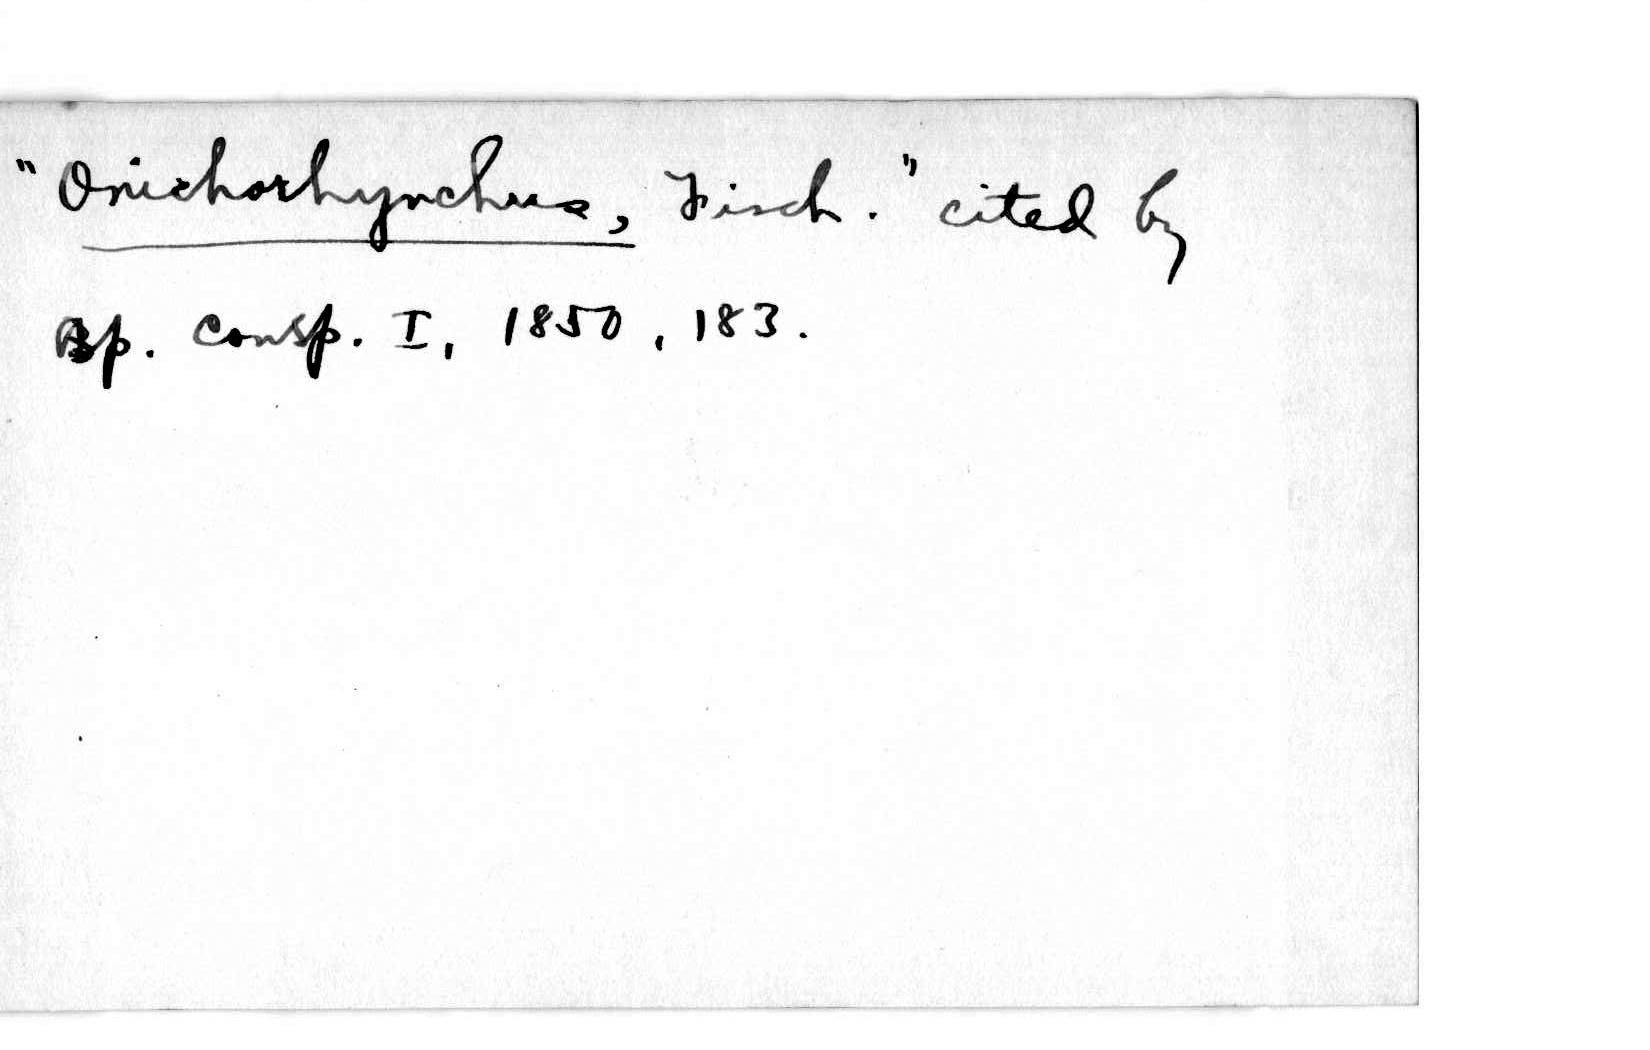 "Onichorhynchus, Fisch." cited by
Bp. Consp. I, 1850, 183.